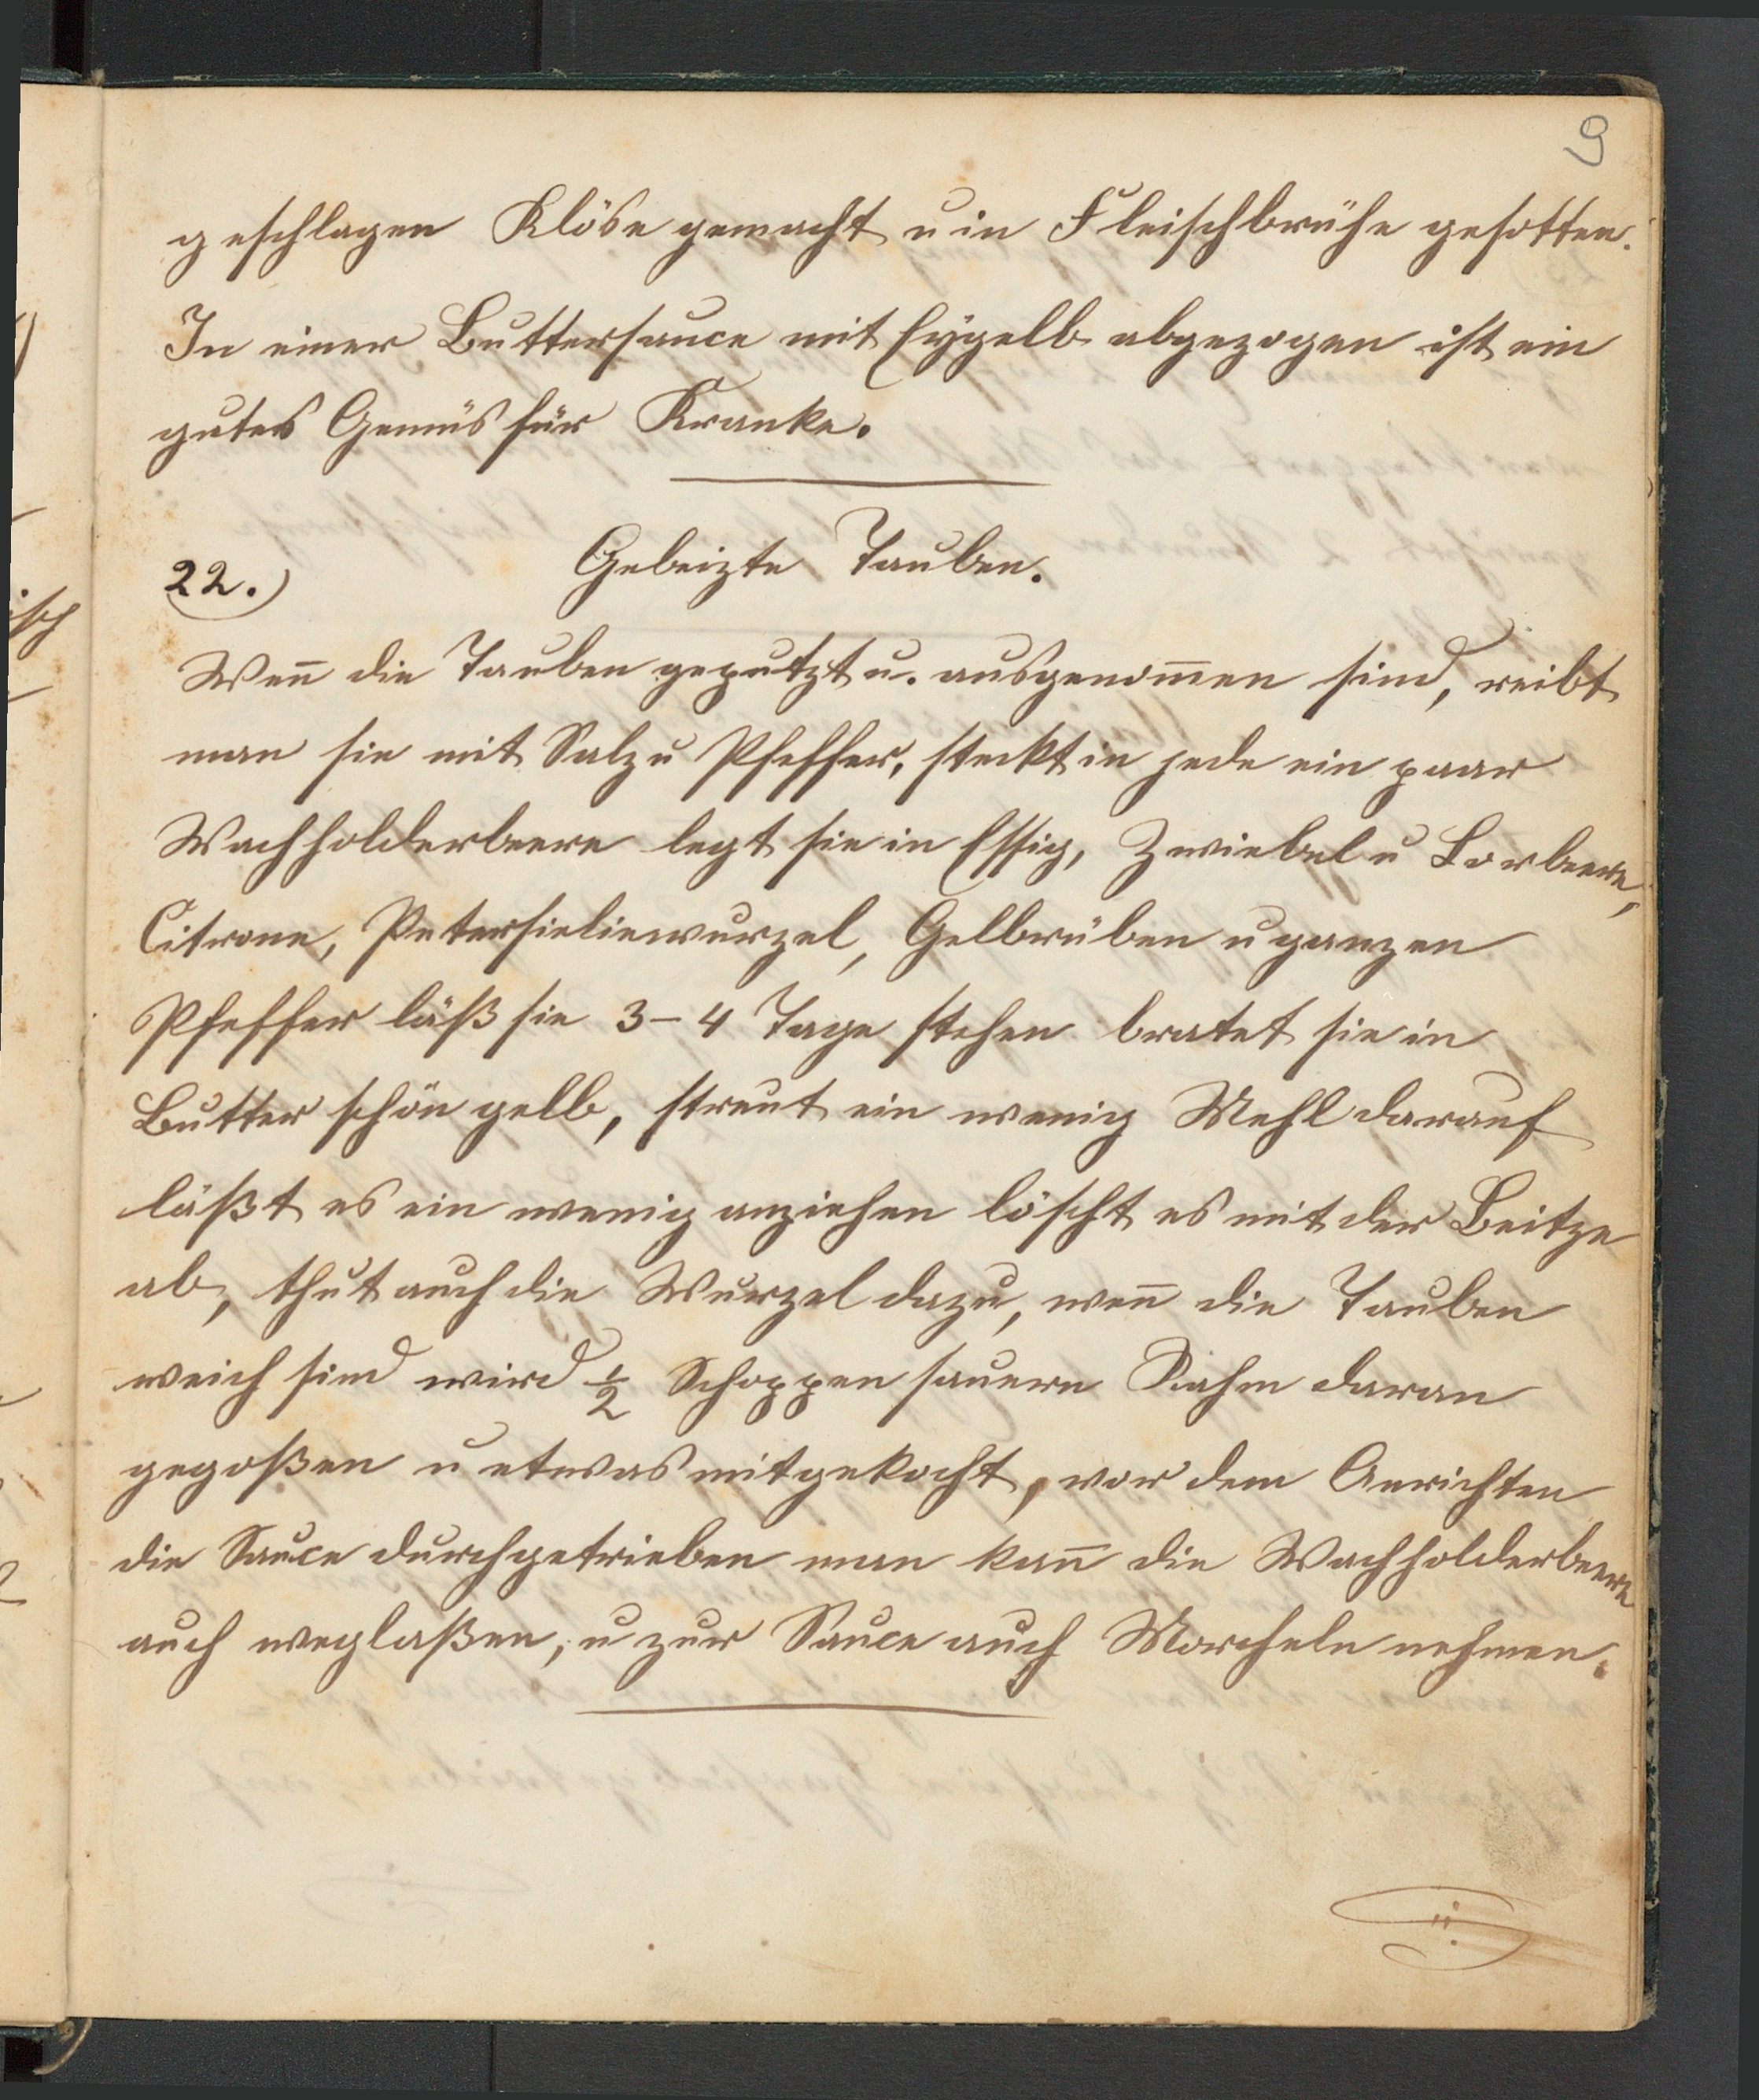 9
geschlagen Klöse gemacht u in Fleischbrühe gesotten.
In einer Buttersauce mit Eygelb abgezogen ist ein
gutes Gemüs für Kranke.
22.) Gebeizte Tauben.
Wen̄ die Tauben geputzt u. ausgenom̄en sind, reibt
man sie mit Salz u Pfeffer, steckt in jede ein paar
Wachholderbeere legt sie in Essig, Zwiebel u Lorbeere,
Citrone, Petersielienwurzel, Gelbrüben u ganzen
Pfeffer läß sie 3-4 Tage stehen bratet sie in
Butter schön gelb, streut ein wenig Mehl darauf
läßt es ein wenig anziehen löscht es mit der Beitze
ab, thut auch die Wurzel dazu, wen̄ die Tauben
weich sind wird ½ Schoppen sauern Rahm daran
gegoßen u etwas mitgekocht, vor dem Anrichten
die Sauce durchgetrieben man kan̄ die Wachholderbeere
auch weglaßen, u zur Sauce auch Morcheln nehmen.